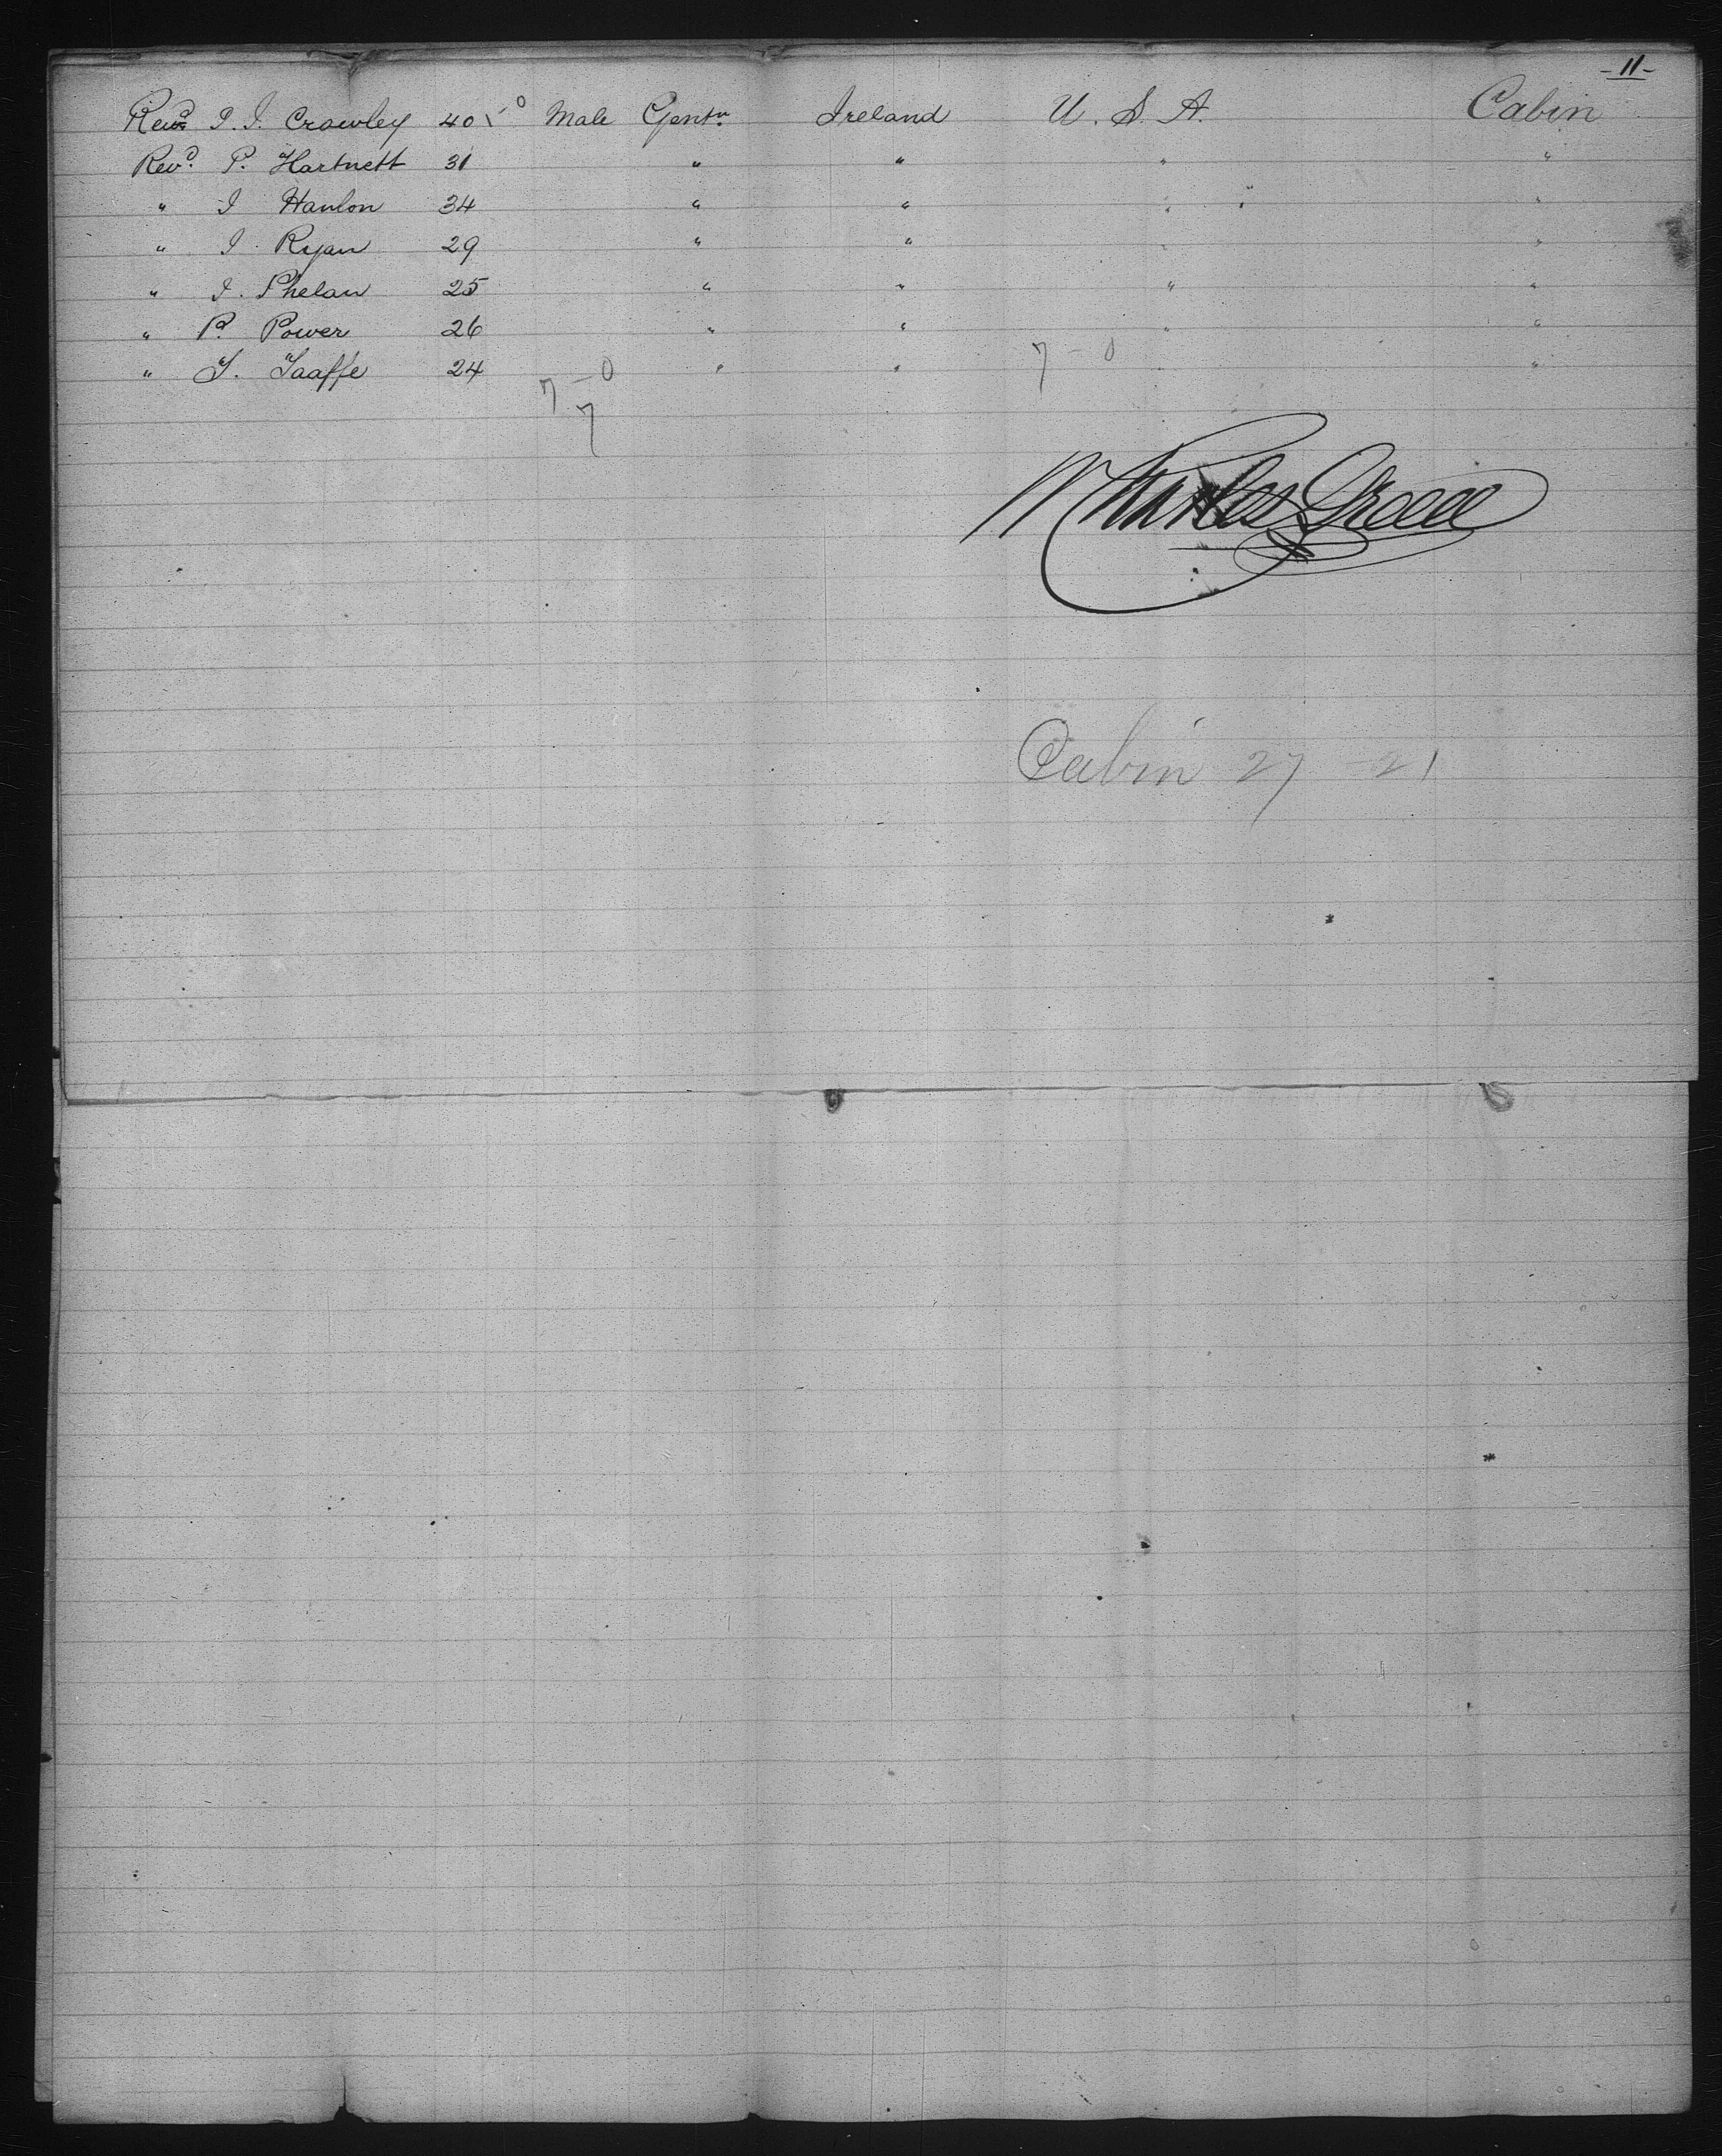 -11-
Revd P. J. Crowley 40 0 Male Gentn Ireland U. S. A. Cabin
Revd. P. Hartnett 31 " " " "
" J Hanlon 34 " " " "
" J. Ryan 29 " " " "
" J. Phelan 25 " " " "
" P. Power 26 " " " "
" T. Taaffe 24 " " " "
7 - 0 7 - 0
7
W Charles
Cabin 27 - 21